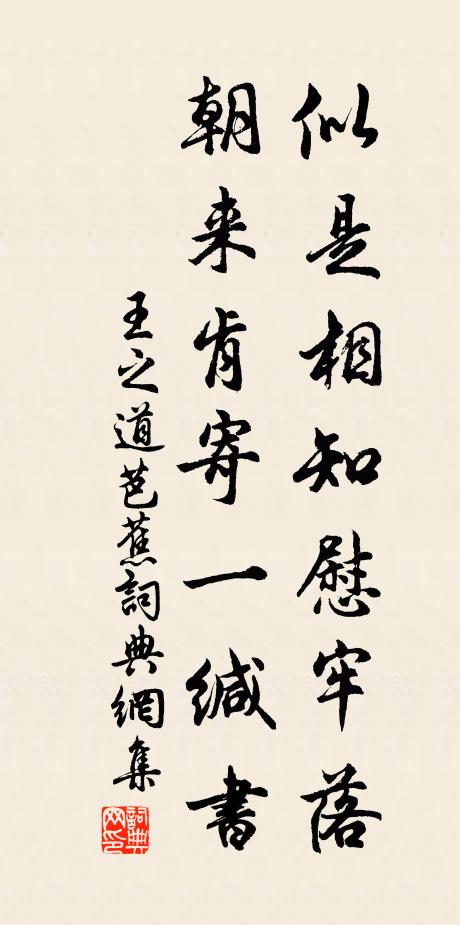 似是相知慰牢落
朝来肯寄一緘書
王之道芭蕉詞典網集
詞典網印